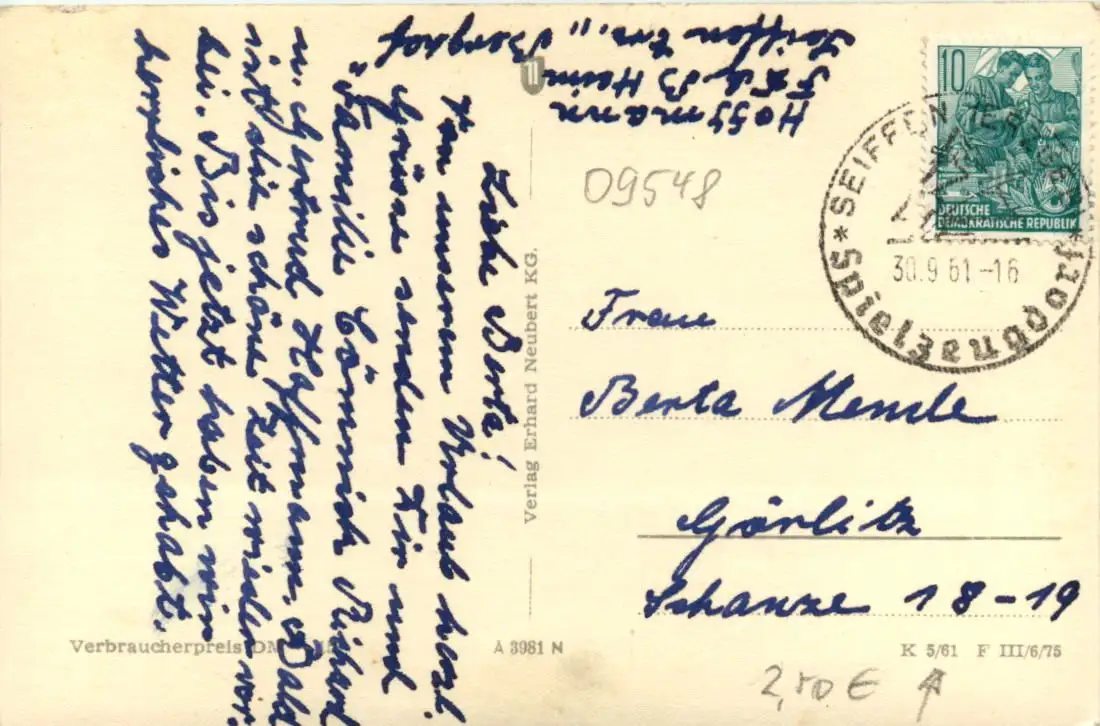 Hoffmann
FDGB Heim
Seiffen Erz. „Berghof"
Liebe Berta!
Von unserem Urlaub herzl.
Grüsse senden Dir und
Familie Cönnich Richard
u. Gertrud Hoffmann. Bald
ist die schöne Zeit wieder vor-
bei. Bis jetzt haben wir
herrliches Wetter gehabt.
Verlag Erhard Neubert KG.
10
DEUTSCHE
DEMOKRATISCHE REPUBLIK
* SEIFFEN
30.9.61-16
Spielzeugdorf
09548
Frau
Berta Mende
Görlitz
Schanze 18-19
Verbraucherpreis DM
A 3981 N
K 5/61 F III/6/75
2,50 €